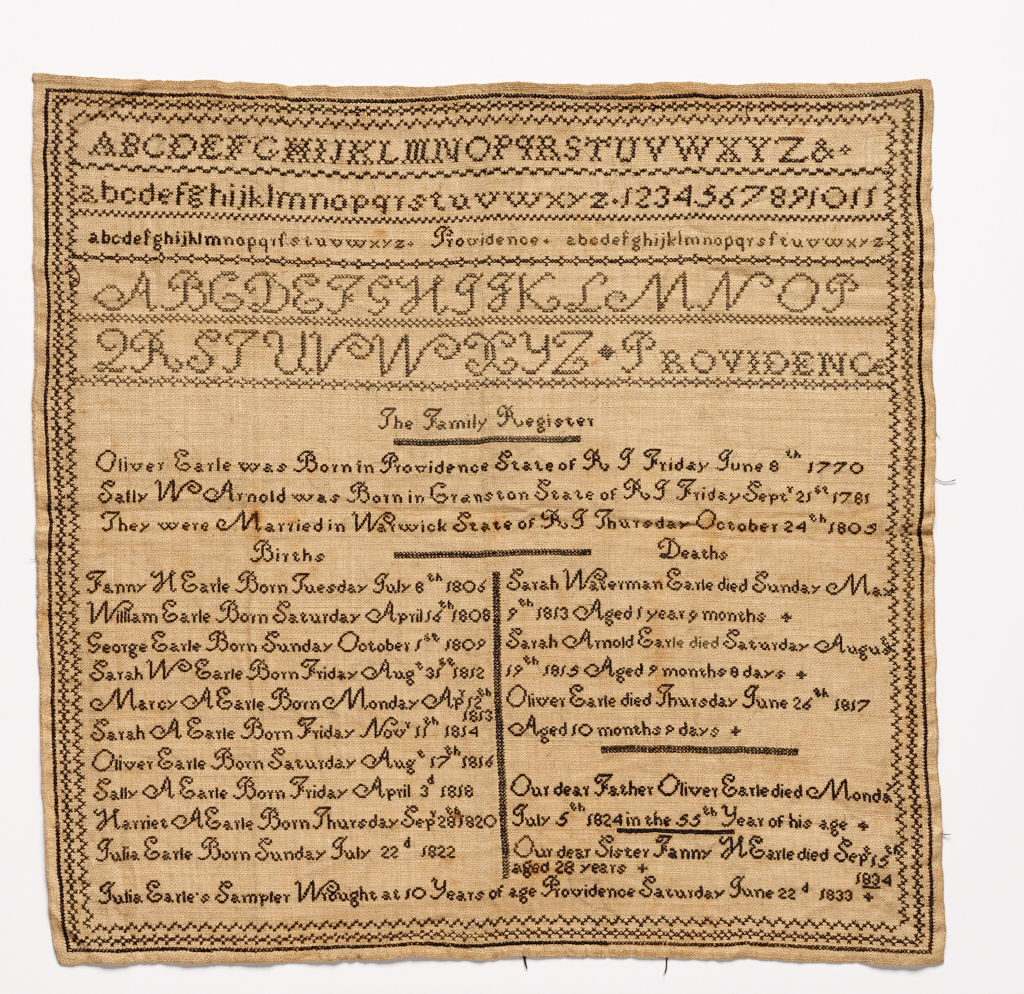 ABCDEFGHIJKLMNOPQRSTUVWXYZ&
abcdefghijklmnopqrstuvwxyz.1234567891011
abcdefghijklmnopqrſstuvwxyz. Providence. abcdefghijklmnopqrsſtuvwxyz
ABCDEFGHIJKLMNOP
QRSTUVWXYZ PROVIDENCe
The Family Register
Oliver Earle was Born in Providence State of R I Friday June 8th 1770
Sally Wm Arnold was Born in Cranston State of R I Friday Septr 21st 1781
They were Married in Warwick State of R I Thursday October 24th 1805
Births
Deaths
Fanny H Earle Born Tuesday July 8th 1806
William Earle Born Saturday April 16th 1808
George Earle Born Sunday October 1st 1809
Sarah Wm Earle Born Friday Augt 31st 1812
Marcy A Earle Born Monday Apr 12th
1813
Sarah A Earle Born Friday Novr 11th 1814
Oliver Earle Born Saturday Augt 17th 1816
Sally A Earle Born Friday April 3d 1818
Harriet A Earle Born Thursday Sepr 28th 1820
Julia Earle Born Sunday July 22d 1822
Sarah Waterman Earle died Sunday May
9th 1813 Aged 1 year 9 months +
Sarah Arnold Earle died Saturday August
19th 1815 Aged 9 months 8 days +
Oliver Earle died Thursday June 26th 1817
Aged 10 months 9 days +
Our dear Father Oliver Earle died Monda
July 5th 1824 in the 55th Year of his age +
Our dear Sister Fanny H Earle died Sept 15th
1834
aged 28 years +
Julia Earle's Sampler Wrought at 10 Years of age Providence Saturday June 22d 1833 +